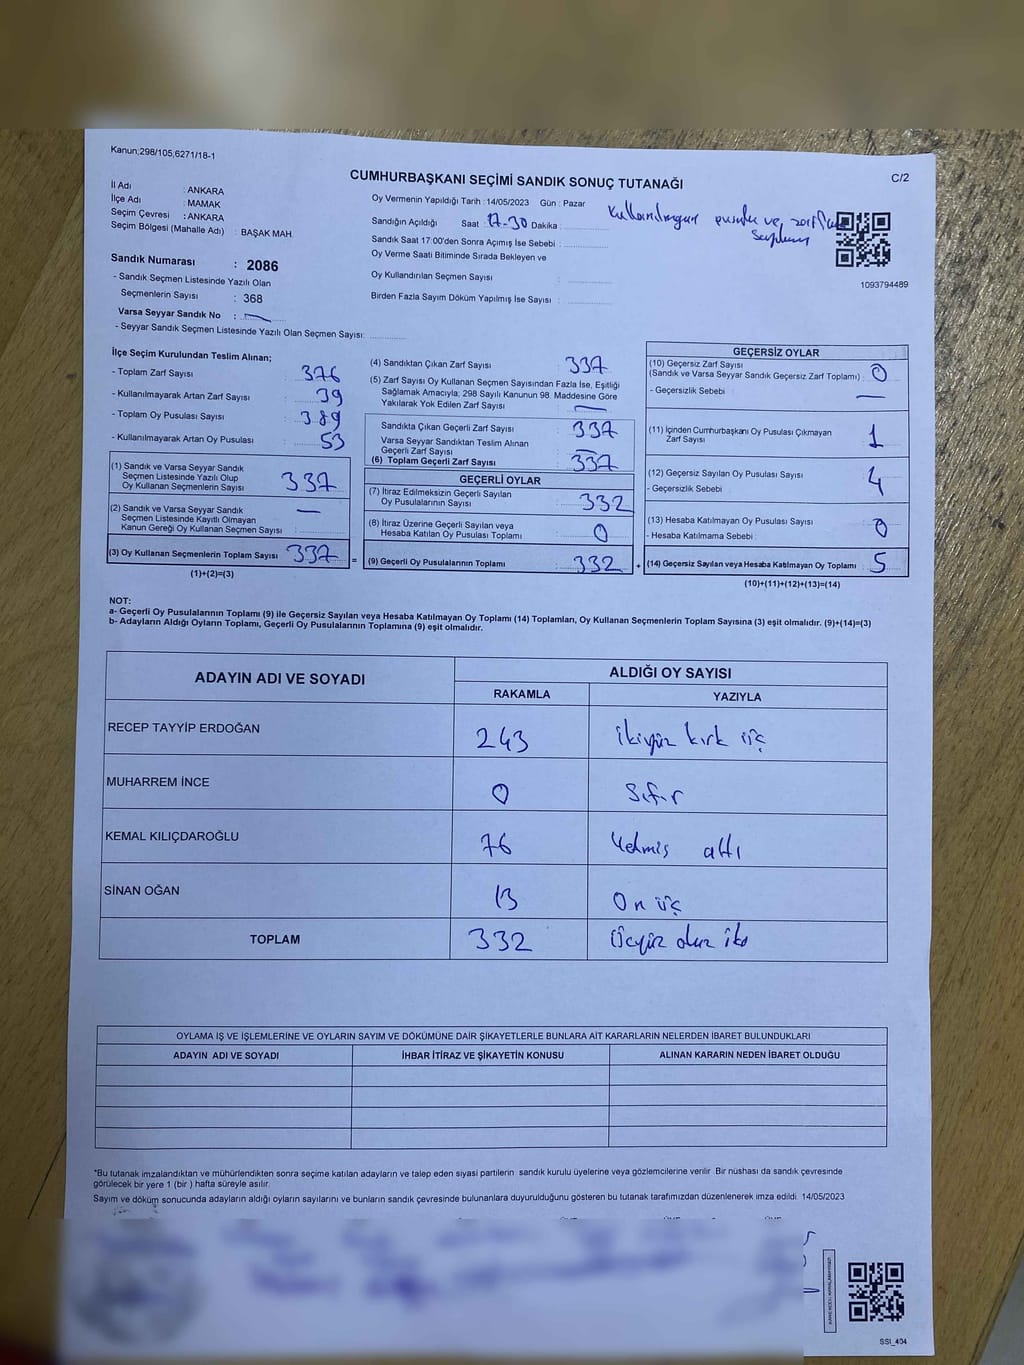 Kanun;298/105;6271/18-1
C/2
CUMHURBAŞKANI SEÇİMİ SANDIK SONUÇ TUTANAĞI
İl Adı : ANKARA
İlçe Adı : MAMAK
Seçim Çevresi : ANKARA
Seçim Bölgesi (Mahalle Adı) : BAŞAK MAH.
Sandık Numarası : 2086
- Sandık Seçmen Listesinde Yazılı Olan
Seçmenlerin Sayısı : 368
Varsa Seyyar Sandık No :
- Seyyar Sandık Seçmen Listesinde Yazılı Olan Seçmen Sayısı:
Oy Vermenin Yapıldığı Tarih : 14/05/2023 Gün : Pazar
Sandığın Açıldığı Saat 17-30 Dakika :
Sandık Saat 17:00'den Sonra Açımış İse Sebebi :
Oy Verme Saati Bitiminde Sırada Bekleyen ve
Oy Kullandırılan Seçmen Sayısı :
Birden Fazla Sayım Döküm Yapılmış İse Sayısı :
1093794489
İlçe Seçim Kurulundan Teslim Alınan;
- Toplam Zarf Sayısı : 376
- Kullanılmayarak Artan Zarf Sayısı : 39
- Toplam Oy Pusulası Sayısı : 389
- Kullanılmayarak Artan Oy Pusulası : 53
(1) Sandık ve Varsa Seyyar Sandık
Seçmen Listesinde Yazılı Olup
Oy Kullanan Seçmenlerin Sayısı : 337
(2) Sandık ve Varsa Seyyar Sandık
Seçmen Listesinde Kayıtlı Olmayan
Kanun Gereği Oy Kullanan Seçmen Sayısı : —
(3) Oy Kullanan Seçmenlerin Toplam Sayısı : 337
(1)+(2)=(3)
(4) Sandıktan Çıkan Zarf Sayısı : 337
(5) Zarf Sayısı Oy Kullanan Seçmen Sayısından Fazla İse, Eşitliği
Sağlamak Amacıyla; 298 Sayılı Kanunun 98. Maddesine Göre
Yakılarak Yok Edilen Zarf Sayısı : —
Sandıkta Çıkan Geçerli Zarf Sayısı : 337
Varsa Seyyar Sandıktan Teslim Alınan
Geçerli Zarf Sayısı : —
(6) Toplam Geçerli Zarf Sayısı : 337
GEÇERLİ OYLAR
(7) İtiraz Edilmeksizin Geçerli Sayılan
Oy Pusulalarının Sayısı : 332
(8) İtiraz Üzerine Geçerli Sayılan veya
Hesaba Katılan Oy Pusulası Toplamı : 0
= (9) Geçerli Oy Pusulalarının Toplamı : 332
GEÇERSİZ OYLAR
(10) Geçersiz Zarf Sayısı
(Sandık ve Varsa Seyyar Sandık Geçersiz Zarf Toplamı) : 0
- Geçersizlik Sebebi : —
(11) İçinden Cumhurbaşkanı Oy Pusulası Çıkmayan
Zarf Sayısı : 1
(12) Geçersiz Sayılan Oy Pusulası Sayısı : 4
- Geçersizlik Sebebi :
(13) Hesaba Katılmayan Oy Pusulası Sayısı : 0
- Hesaba Katılmama Sebebi :
+ (14) Geçersiz Sayılan veya Hesaba Katılmayan Oy Toplamı : 5
(10)+(11)+(12)+(13)=(14)
NOT:
a- Geçerli Oy Pusulalarının Toplamı (9) ile Geçersiz Sayılan veya Hesaba Katılmayan Oy Toplamı (14) Toplamları, Oy Kullanan Seçmenlerin Toplam Sayısına (3) eşit olmalıdır. (9)+(14)=(3)
b- Adayların Aldığı Oyların Toplamı, Geçerli Oy Pusulalarının Toplamına (9) eşit olmalıdır.
ADAYIN ADI VE SOYADI
ALDIĞI OY SAYISI
RAKAMLA YAZIYLA
RECEP TAYYİP ERDOĞAN 243 ikiyüz kırk üç
MUHARREM İNCE 0 sıfır
KEMAL KILIÇDAROĞLU 76 Yetmiş altı
SİNAN OĞAN 13 On üç
TOPLAM 332 Üçyüz otuz iki
OYLAMA İŞ VE İŞLEMLERİNE VE OYLARIN SAYIM VE DÖKÜMÜNE DAİR ŞİKAYETLERLE BUNLARA AİT KARARLARIN NELERDEN İBARET BULUNDUKLARI
ADAYIN ADI VE SOYADI İHBAR İTİRAZ VE ŞİKAYETİN KONUSU ALINAN KARARIN NEDEN İBARET OLDUĞU
*Bu tutanak imzalandıktan ve mühürlendikten sonra seçime katılan adayların ve talep eden siyasi partilerin sandık kurulu üyelerine veya gözlemcilerine verilir. Bir nüshası da sandık çevresinde
görülecek bir yere 1 (bir ) hafta süreyle asılır.
Sayım ve döküm sonucunda adayların aldığı oyların sayılarını ve bunların sandık çevresinde bulunanlara duyurulduğunu gösteren bu tutanak tarafımızdan düzenlenerek imza edildi. 14/05/2023
SSİ_404